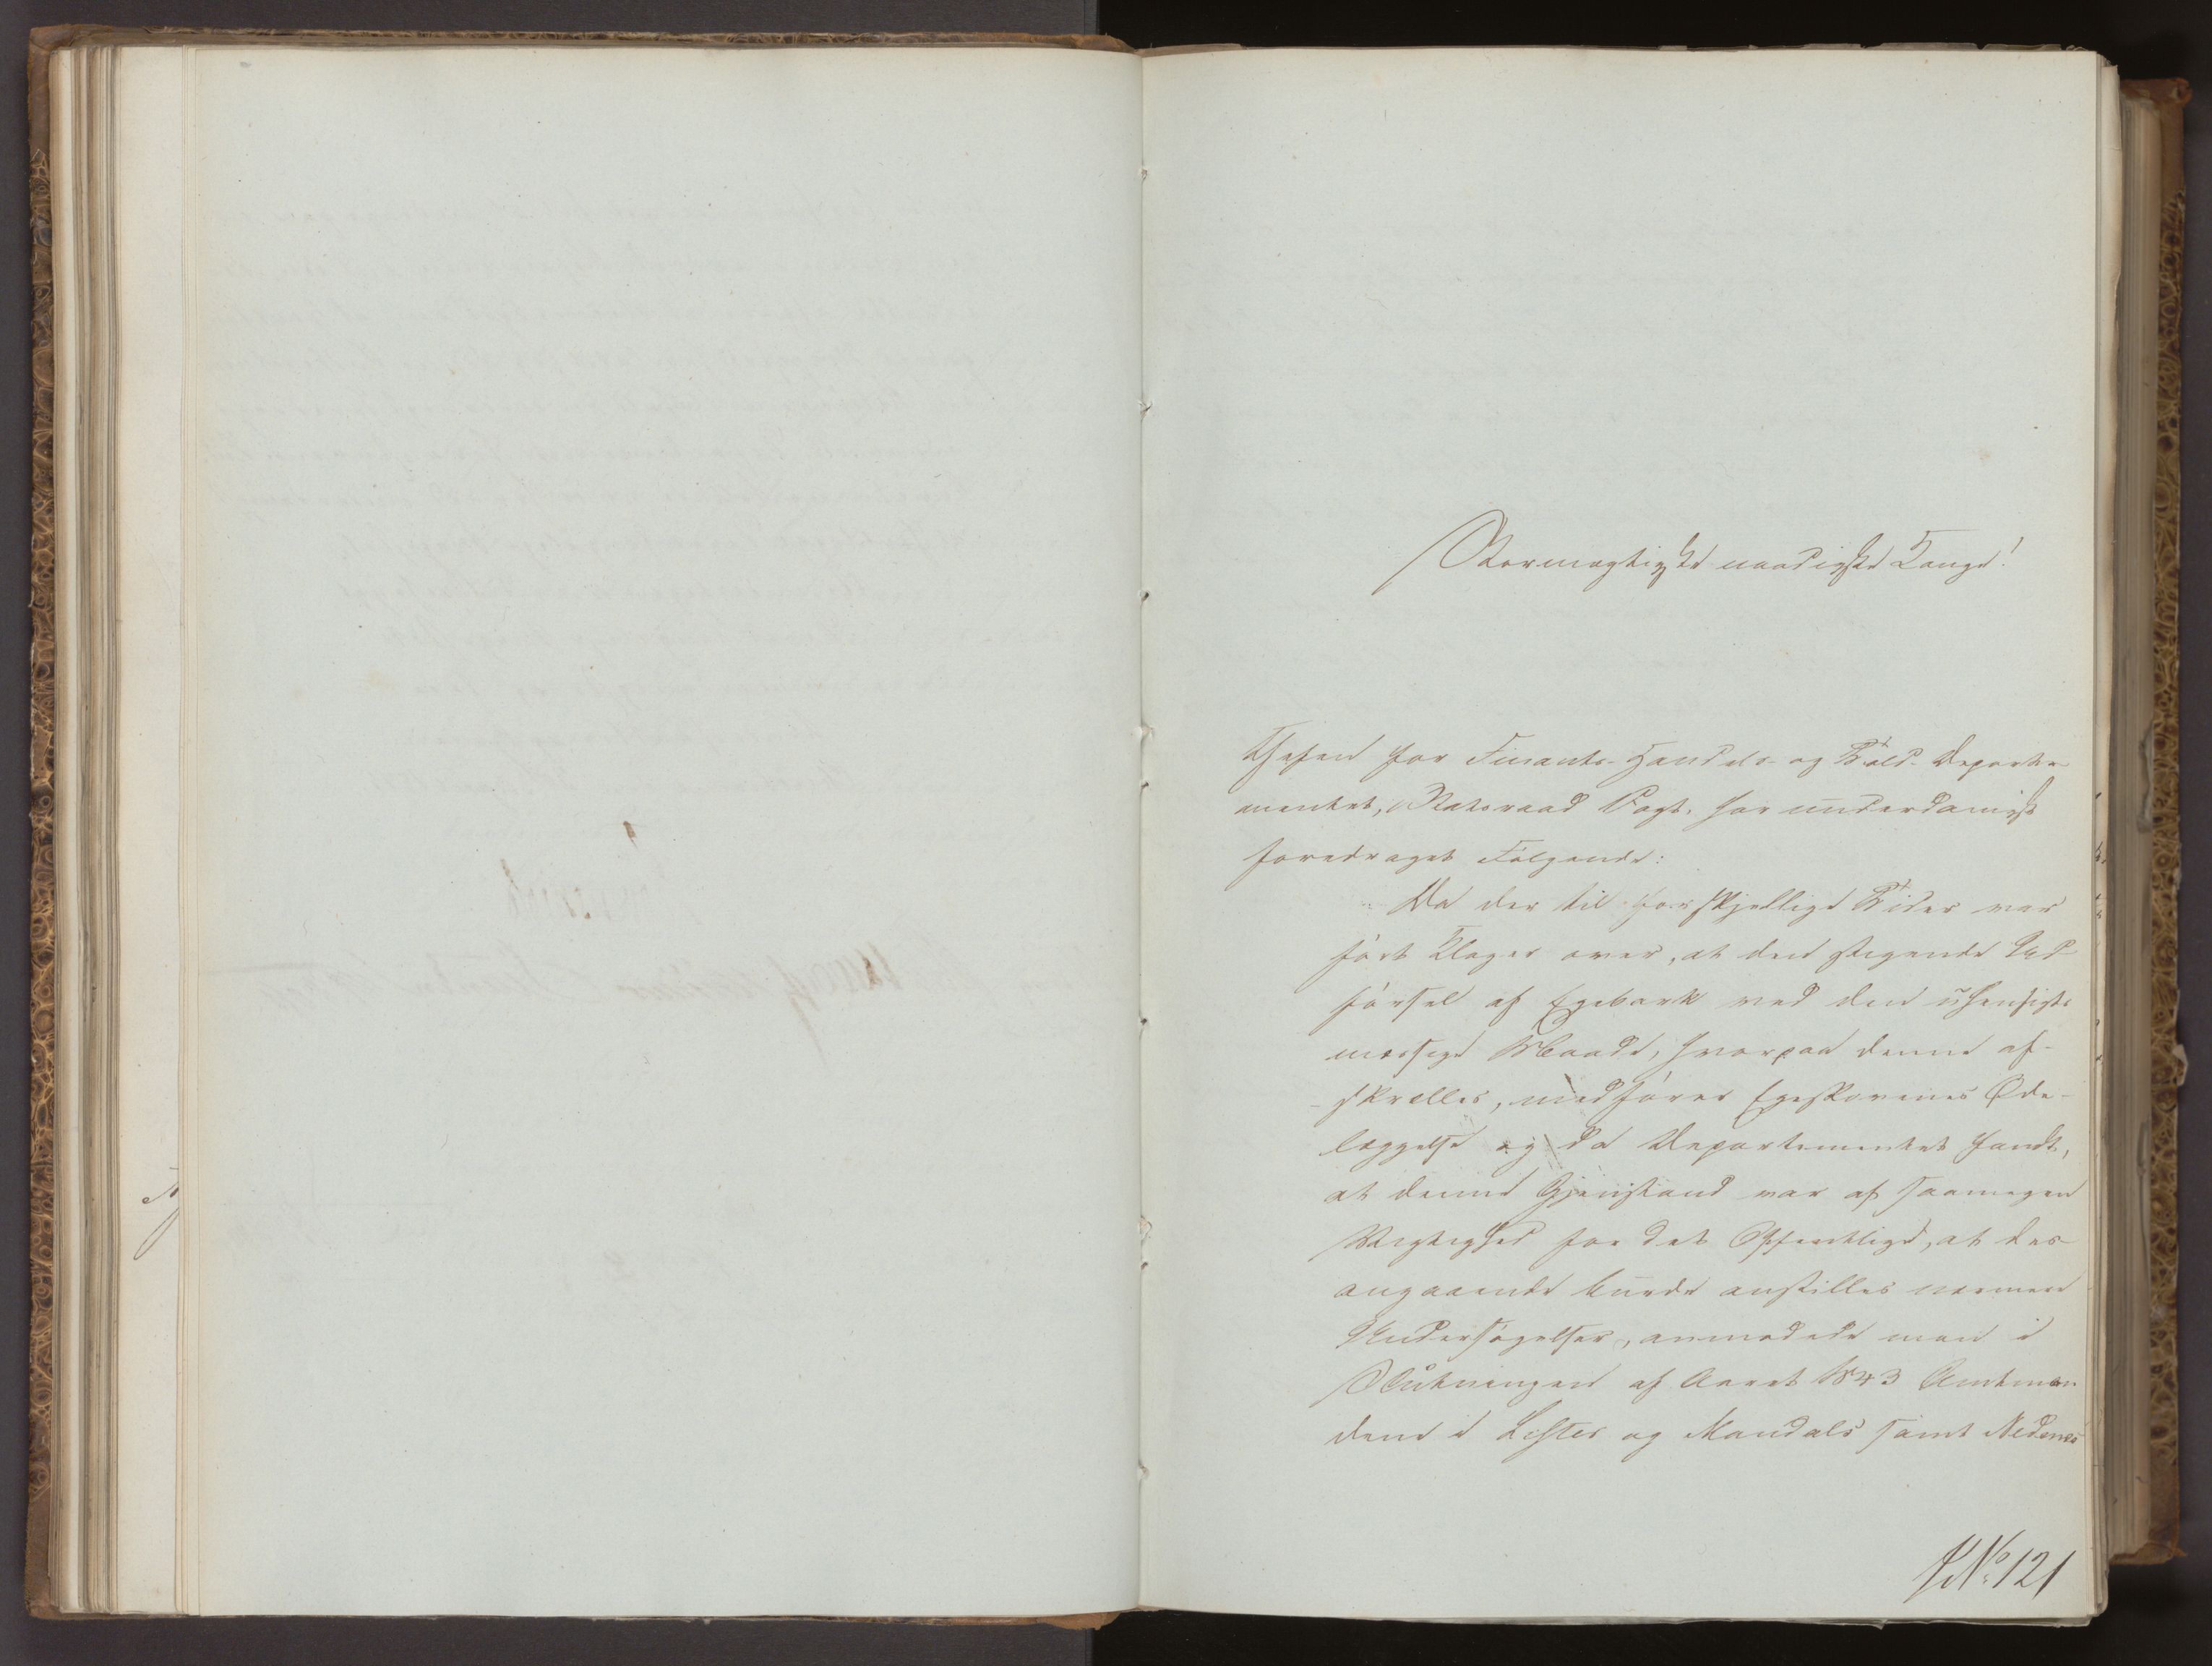 Stormægtigste naadigste Konge!
Chefen for Finants- Handels- og Told-Departe
mentet, Statsraad Vogt, har underdanigst
foredraget Følgende:
Da der til forskjellige Tider var
ført Klager over, at den stigende Ud-
førsel af Egebark ved den uhensigts
mæssige Maade, hvorpaa denne af-
-skrælles, medfører Egeskovenes Øde-
læggelse og da Departementet fandt,
at denne Gjenstand var af saamegen
Vigtighed for det Offentlige, at des-
angaaende burde anstilles nærmere
Undersøgelser, anmodede man i
Slutningen af Aaret 1843 Amtmæn
dene i Lister og Mandals samt Nedenes
No. 121